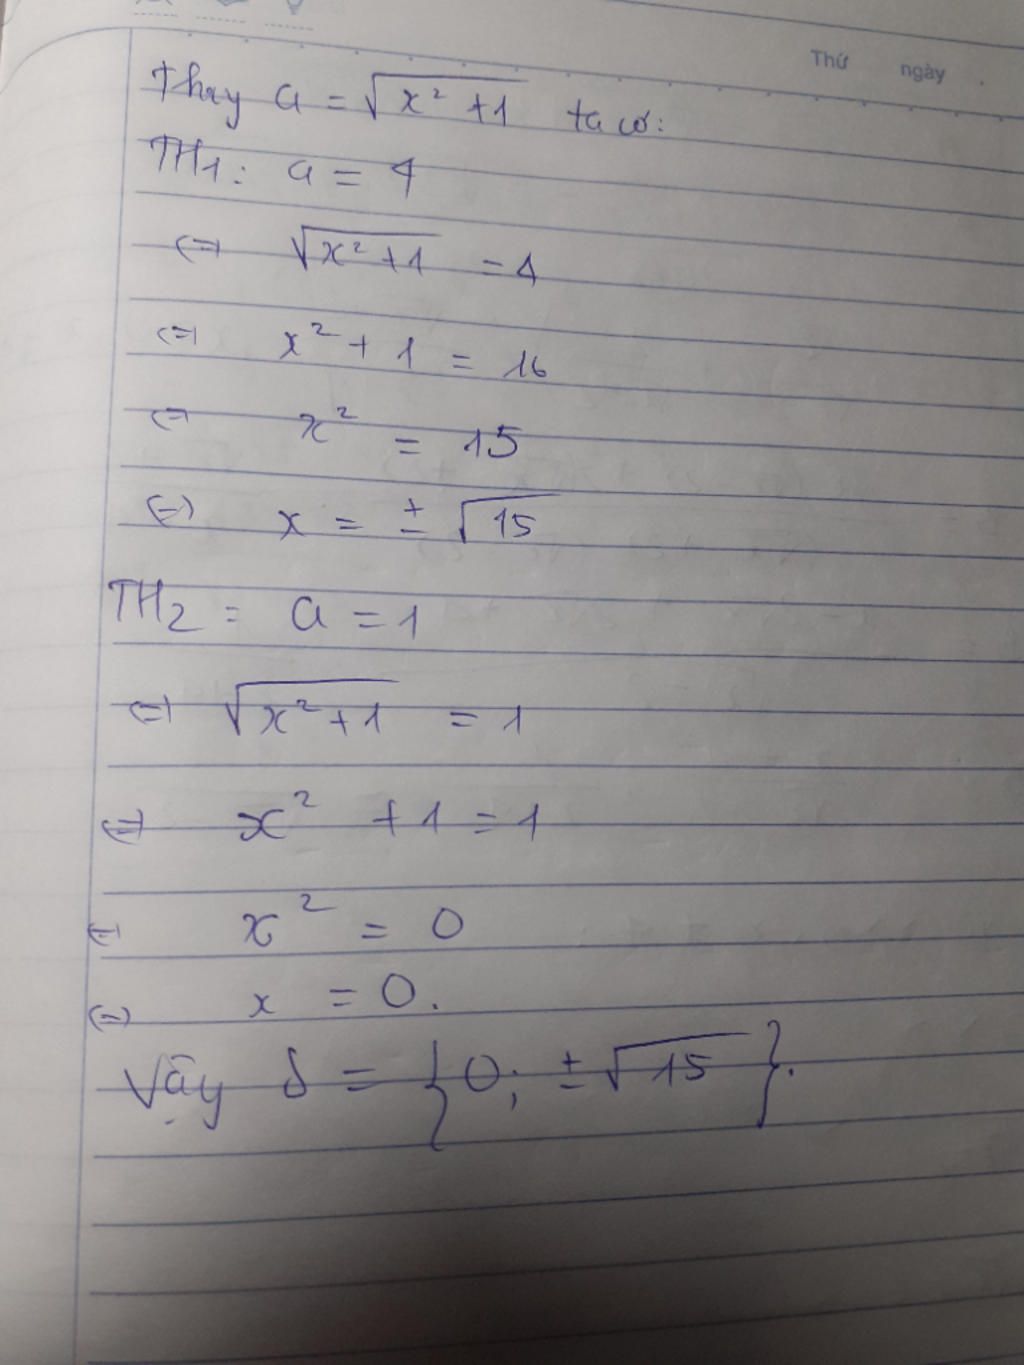 Thứ ngày .
Thay a = √(x² + 1) ta có:
TH1: a = 4
(=) √(x² + 1) = 4
(=) x² + 1 = 16
(=) x² = 15
(=) x = ± √15
TH2 : a = 1
(=) √(x² + 1) = 1
(=) x² + 1 = 1
(=) x² = 0
(=) x = 0.
Vậy S = {0; ±√15}.